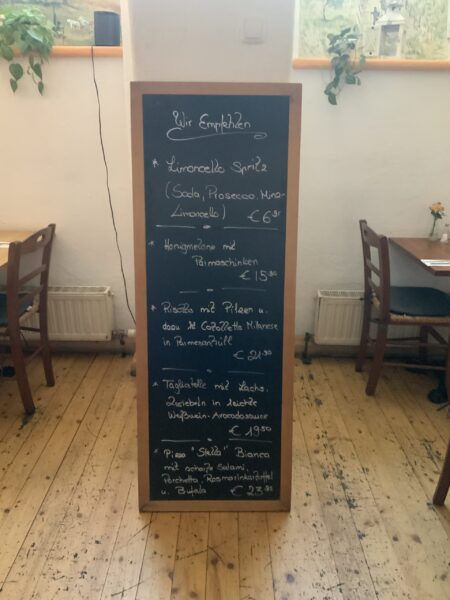 Wir Empfehlen
* Limoncello Spritz
(Soda, Prosecco, Minze
Limoncello) € 6.
* Honigmelone mit
Parmaschinken
€ 15.90
* Risotto mit Pilzen u.
dazu Cotoletta Milanese
in Parmesanhüll
€ 21.90
* Tagliatelle mit Lachs,
Zwiebeln in leichte
Weißwein-Avocadosauce
€ 19.50
* Pizza "Stella" Bianca
mit scharfe Salami,
Porchetta, Rosmarinkartoffel
u. Bufala € 23.90